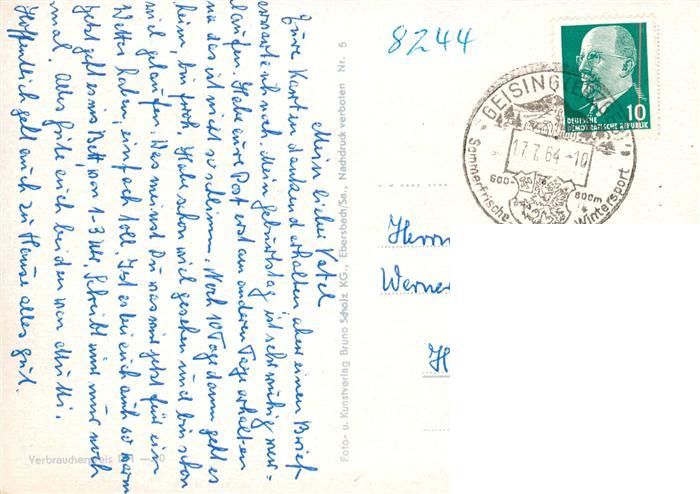 Mein lieber Vatel
Eure Karten dankend erhalten aber einen Brief
erwarte ich noch. Mein Geburtstag ist sehr ruhig ver-
laufen. Habe eure Post erst am anderen Tage erhalten
na das ist nicht so schlimm. Noch 10 Tage dann geht es
heim, bin froh. Habe schon viel gesehen und bin schon
viel gelaufen. Was meinst Du was wir jetzt für ein
Wetter haben, einfach toll. Ist es bei euch auch so warm
Jetzt geht es ins Bett, von 1-3 Uhr. Schreibt mir nur noch
mal. Alles gute euch beiden von Mutti.
Hoffentlich geht auch zu Hause alles gut.
Verbraucherpreis
Foto- u. Kunstverlag Bruno Scholz KG., Ebersbach/Sa., Nachdruck verboten Nr. 5
8244
GEISING
17.7.64-10
600-
800m
Sommerfrische
Wintersport
10
DEUTSCHE
DEMOKRATISCHE REPUBLIK
Herrn
Werner
H